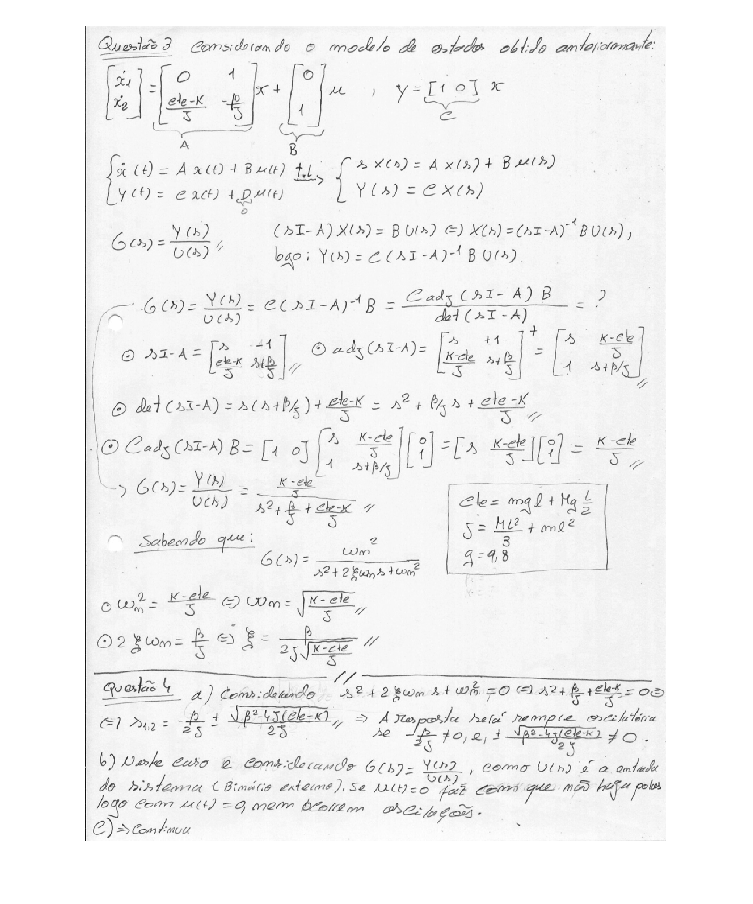 Questão 3 Considerando o modelo de estados obtido anteriormente:
[ẋ1 ẋ2] = [0 1; cte-K/J -β/J] x + [0; 1] u , Y = [1 0] x
A B C
{ẋ(t) = A x(t) + B u(t) t.L → { s X(s) = A X(s) + B U(s)
{Y(t) = C x(t) + D u(t) { Y(s) = C X(s)
0
G(s) = Y(s)/U(s) // (sI-A) X(s) = B U(s) ⇔ X(s) = (sI-A)⁻¹ B U(s),
logo: Y(s) = C (sI-A)⁻¹ B U(s)
G(s) = Y(s)/U(s) = C (sI-A)⁻¹ B = C adj (sI-A) B / det (sI-A) = ?
⊙ sI-A = [s -1; cte-K/J s+β/J] // ⊙ adj (sI-A) = [s +1; K-cte/J s+β/J]⁺ = [s K-cte/J; 1 s+β/J] //
⊙ det (sI-A) = s(s+β/J) + cte-K/J = s² + β/J s + cte-K/J //
⊙ C adj (sI-A) B = [1 0] [s K-cte/J; 1 s+β/J] [0; 1] = [s K-cte/J] [0; 1] = K-cte/J //
→ G(s) = Y(s)/U(s) = K-cte/J / s² + β/J + cte-K/J //
cte = mgl + Mg L/2
J = ML²/3 + ml²
g = 9,8
Sabendo que:
G(s) = ωn² / s² + 2ξωn s + ωn²
⊙ ωn² = K-cte/J ⇔ ωn = √(K-cte/J) //
⊙ 2ξωn = β/J ⇔ ξ = β / 2J√(K-cte/J) //
//
Questão 4 a) Considerando s² + 2ξωn s + ωn² = 0 ⇔ s² + β/J + cte-K/J = 0 ⇔
⇔ s1,2 = β/2J ± √(β²-4J(cte-K))/2J // ⇒ A resposta será sempre oscilatória
se -β/2J ≠ 0, e, ± √(β²-4J(cte-K))/2J ≠ 0.
b) Neste caso e considerando G(s) = Y(s)/U(s), como U(s) é a entrada
do sistema (Binário externo). Se u(t)=0 faz com que não haja polos
logo com u(t) = 0, nem ocorrem oscilações.
C) ⇒ Continua